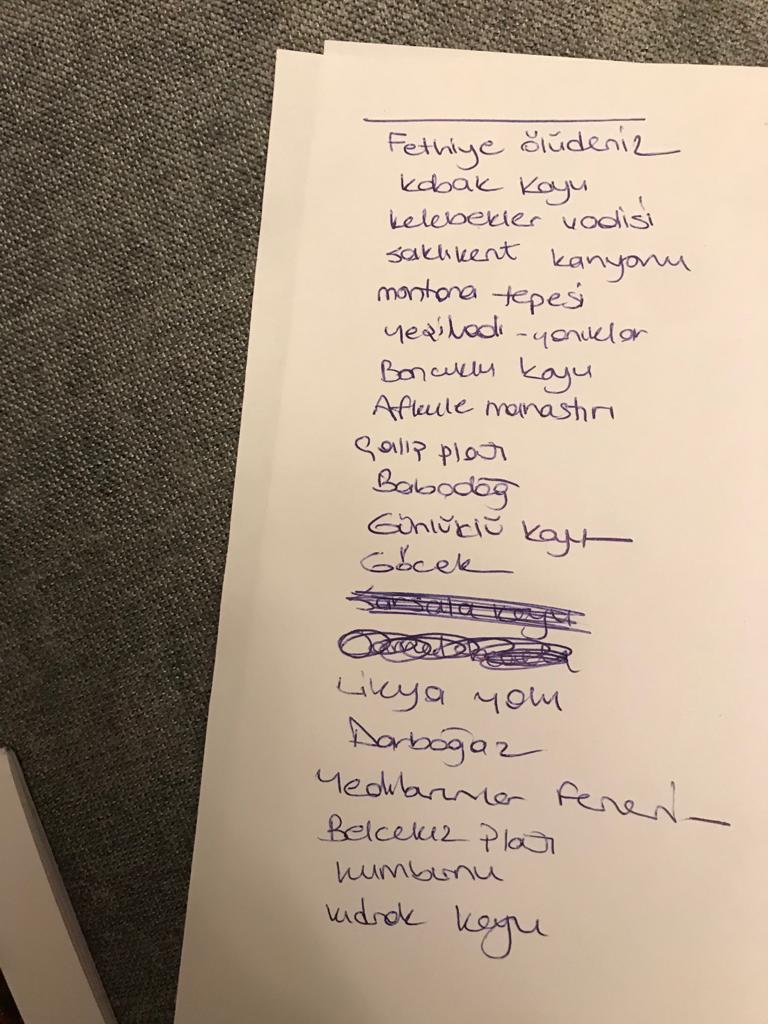 Fethiye ölüdeniz
kabak koyu
kelebekler vadisi
saklıkent kanyonu
montana tepesi
yeşilvadi - yanıklar
Boncuklu koyu
Afkule manastırı
Çalış plajı
Babadağ
Günlüklü koyu
Göcek
Sarsala koyu
Likya yolu
Darboğaz
Yediburunlar Feneri
Belcekız plajı
kumburnu
kıdrak koyu